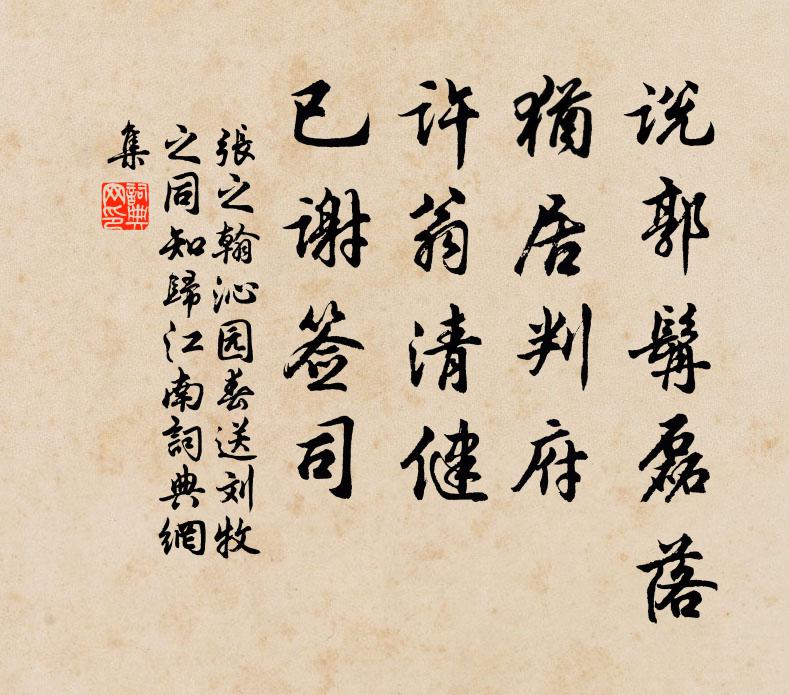 说郭髯磊落
犹居判府
许翁清健
已谢签司
張之翰沁园春送刘牧
之同知歸江南詞典網
集
詞典
网印